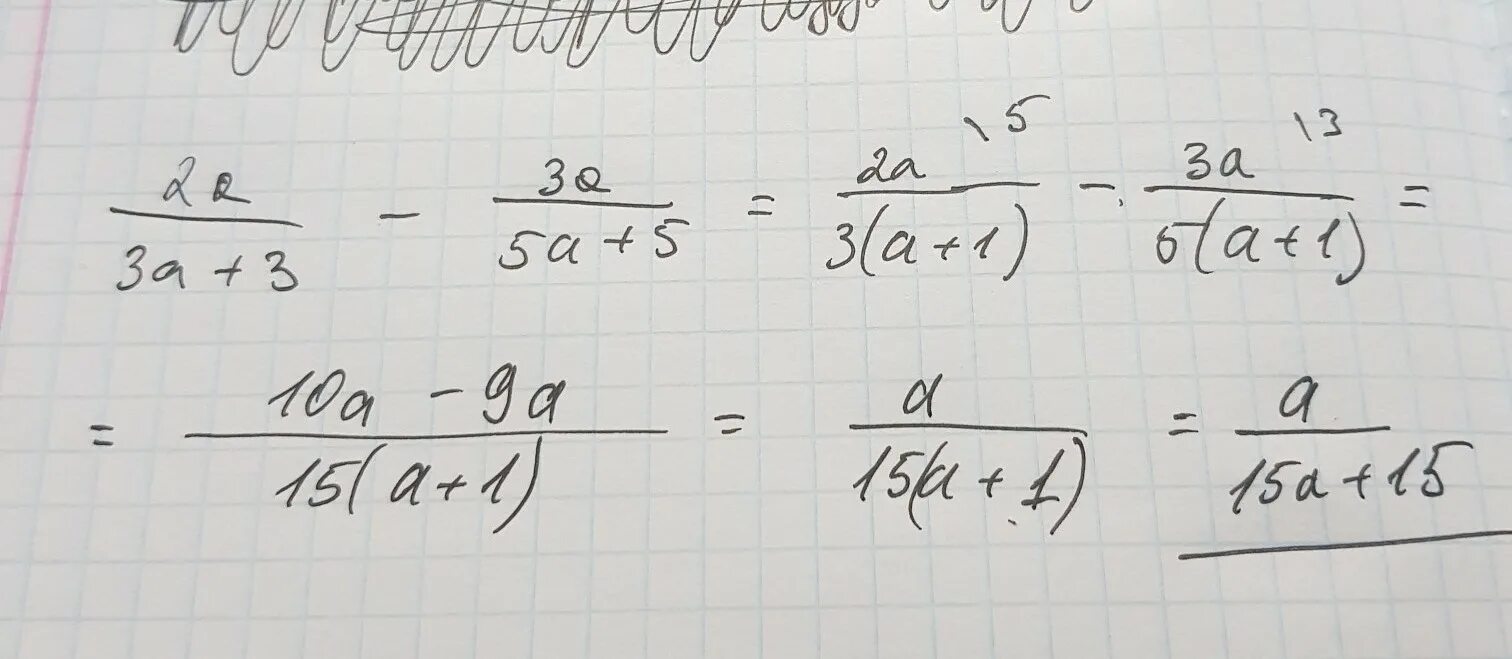 2a/(3a+3) - 3a/(5a+5) = 2a\5/(3(a+1)) - 3a\3/(5(a+1)) =
= (10a - 9a)/(15(a+1)) = a/(15(a+1)) = a/(15a+15)